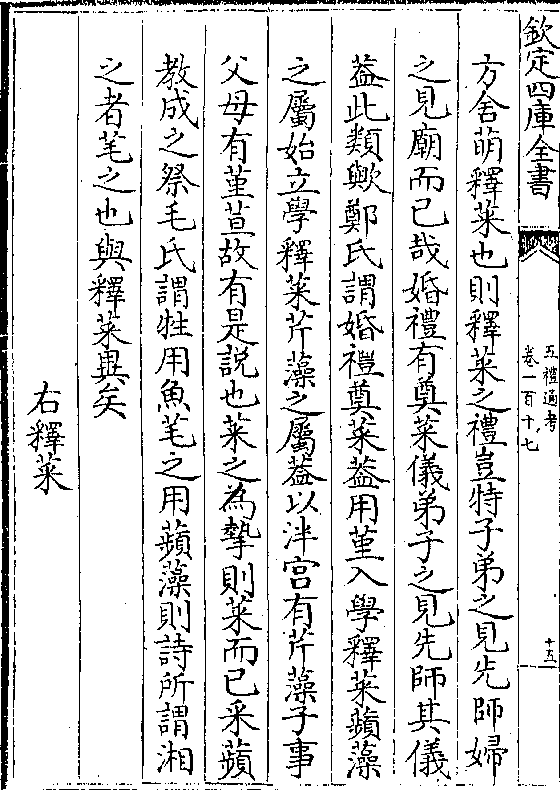 欽定四庫全書
五禮通考
卷一百十七
十五
方舍萌釋菜也則釋菜之禮豈特子弟之見先師婦
之見廟而已哉婚禮有奠菜儀弟子之見先師其儀
葢此類歟鄭氏謂婚禮奠菜葢用菫入學釋菜蘋藻
之屬始立學釋菜芹藻之屬葢以泮宫有芹藻子事
父母有菫荁故有是説也菜之為摯則菜而已采蘋
教成之祭毛氏謂牲用魚芼之用蘋藻則詩所謂湘
之者芼之也與釋菜異矣
右釋菜